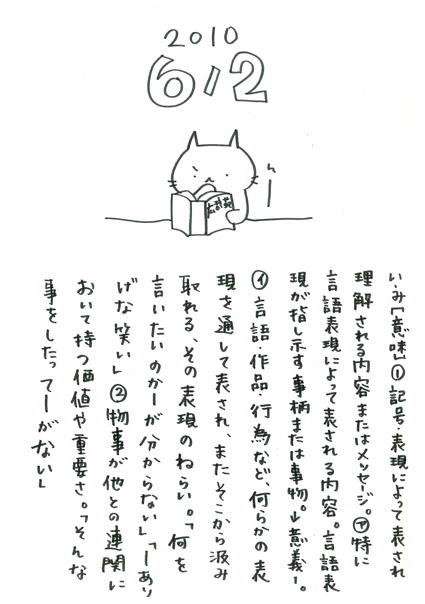 2010
6/2
んー
広辞苑
い・み【意味】①記号・表現によって表され
理解される内容またはメッセージ。㋐特に
言語表現によって表される内容。言語表
現が指し示す事柄または事物。→意義ー。
㋑言語・作品・行為など、何らかの表
現を通して表され、またそこから汲み
取れる、その表現のねらい。「何を
言いたいのかーが分からない」「ーあり
げな笑い」②物事が他との連関に
おいて持つ価値や重要さ。「そんな
事をしたってーがない」